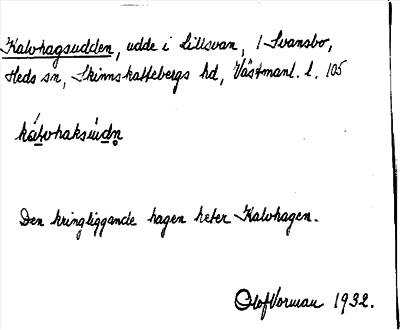 Kalvhagsudden, udde i Lillsvan, 1 Svansbo,
Heds sn, Skinnskattebergs hd, Västmanl. l. 105
kálvhaksúdn̥
Den kringliggande hagen heter Kalvhagen.
Olof Vorman 1932.